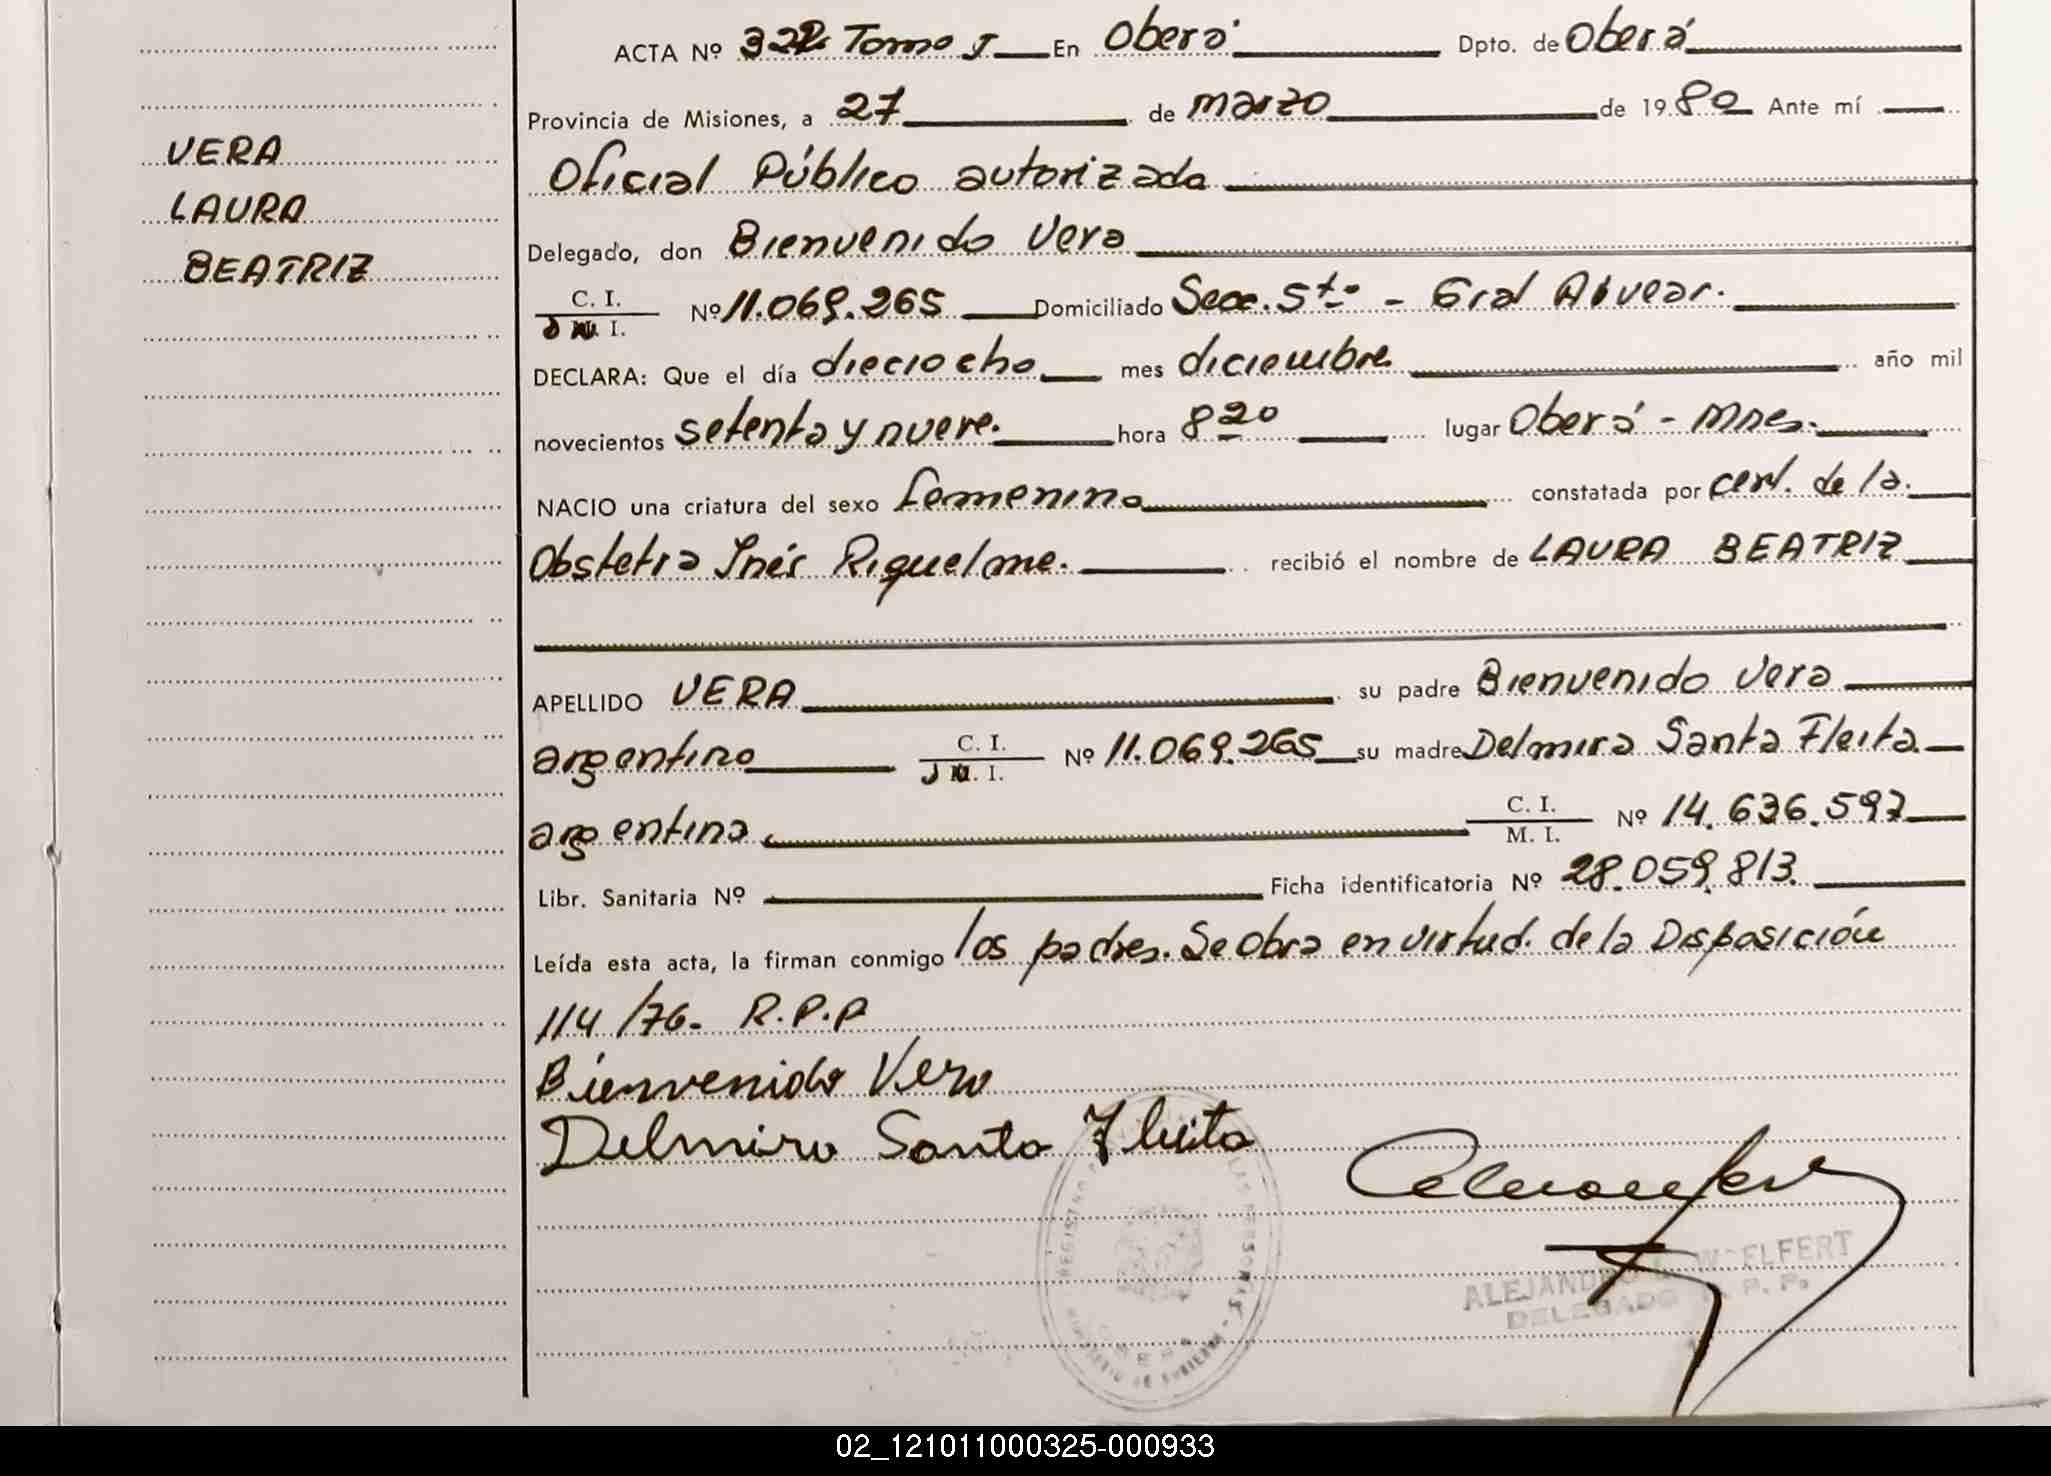 ACTA Nº 322 Tomo I En Oberá Dpto. de Oberá
Provincia de Misiones, a 27 de marzo de 1980 Ante mí
Oficial Público autorizado
Delegado, don Bienvenido Vera
C. I.
I. Nº 11.069.265 Domiciliado Secc. 5ta - Gral Alvear.
DECLARA: Que el día dieciocho mes diciembre año mil
novecientos setenta y nueve. hora 8 20 lugar Oberá - Mnes.
NACIO una criatura del sexo femenino constatada por cert. de la
Obstetra Inés Riquelme. recibió el nombre de LAURA BEATRIZ
APELLIDO VERA su padre Bienvenido Vera
argentino C. I. I. Nº 11.069.265 su madre Delmira Santa Fleita
argentina C. I. M. I. Nº 14.636.597
Libr. Sanitaria Nº Ficha identificatoria Nº 28.059.813.
Leída esta acta, la firman conmigo los padres. Se obra en virtud. de la Disposición
114/76. R.P.P
Bienvenido Vera
Delmira Santa Fleita
VERA
LAURA
BEATRIZ
REGISTRO LAS PERSONAS
ALEJANDRO WOELFERT
DELEGADO R. P. P.
02_121011000325-000933